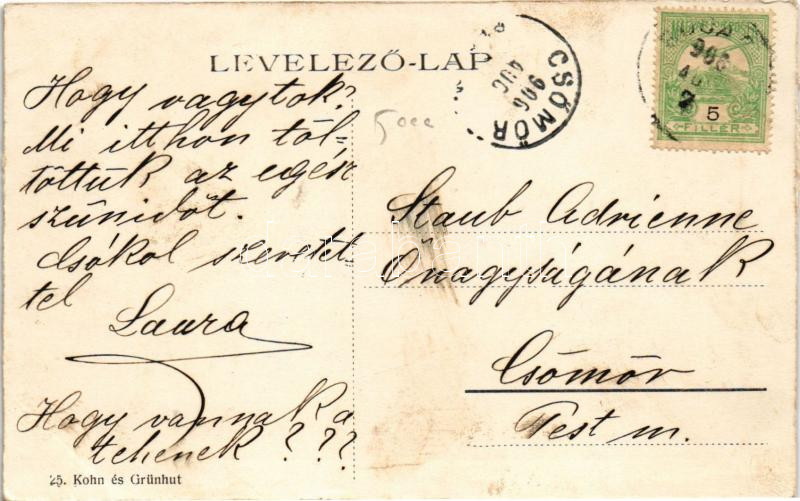 LEVELEZŐ-LAP
Hogy vagytok?
Mi itthon töl-
töttük az egész
szünidőt.
Csókol szeretet-
tel
Laura
Hogy vannak a
tehenek???
25. Kohn és Grünhut
5000
CSÖMÖR
906
AUG
906
5
FILLÉR
Staub Adrienne
Őnagyságának
Csömör
Pest m.